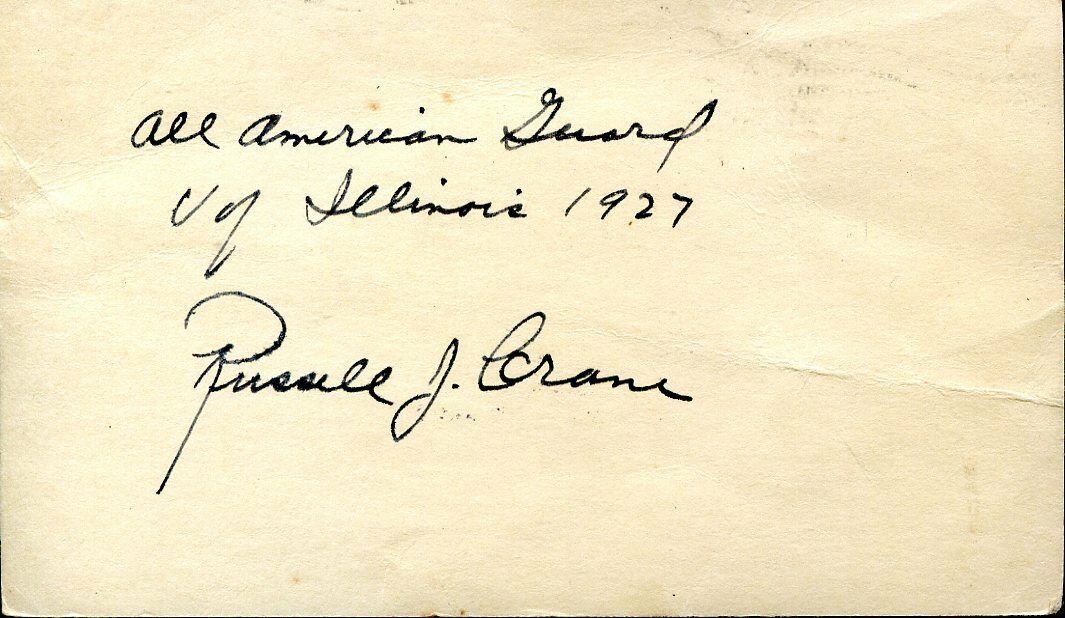 All American Guard
U of Illinois 1927
Russell J. Crane